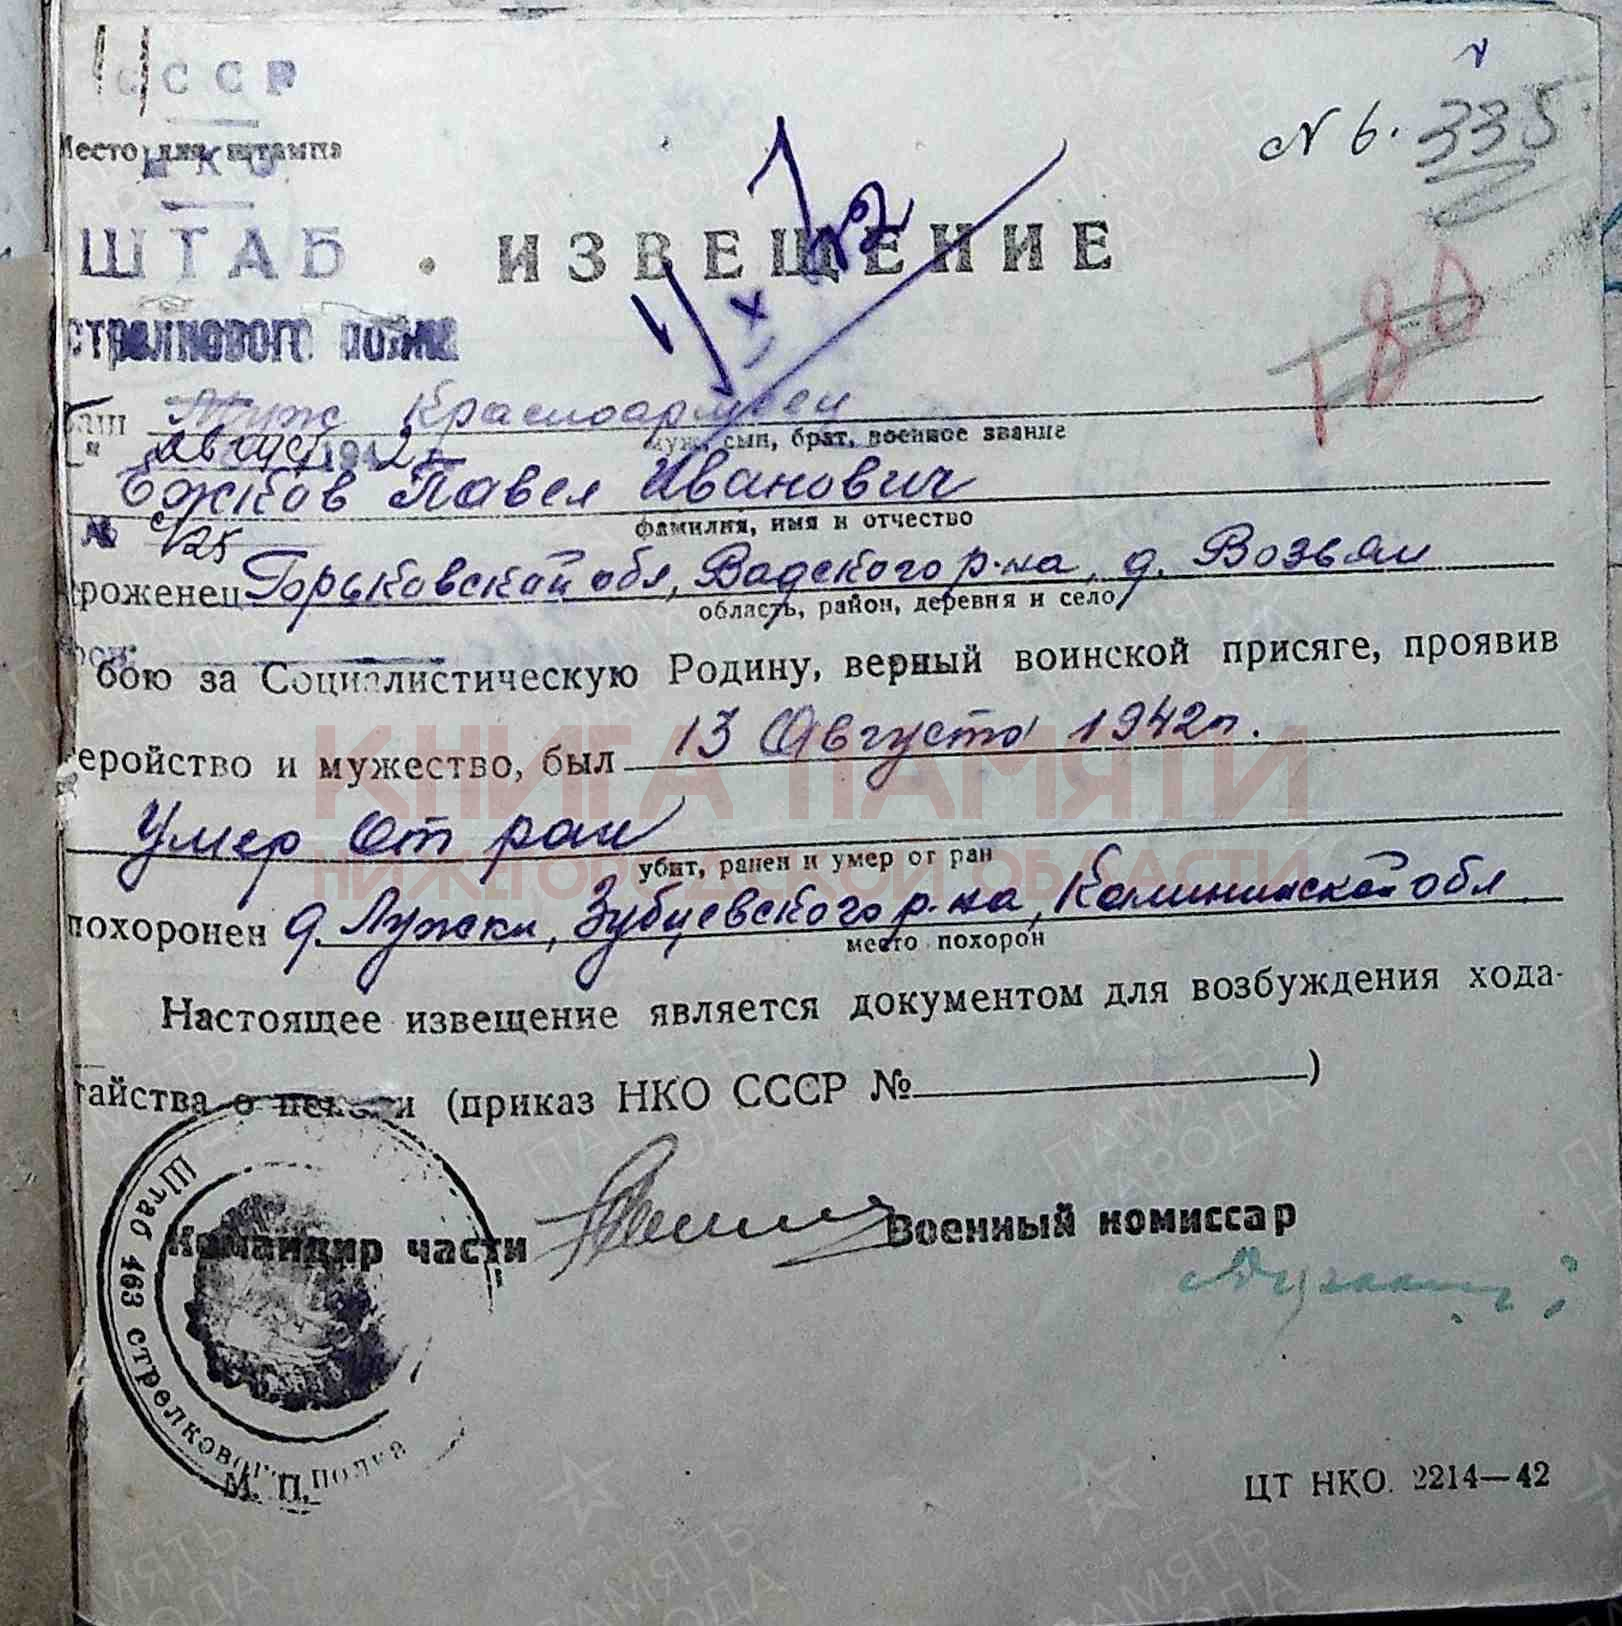 СССР
N 6. 335
Место для штампа
НКО
ШТАБ
ИЗВЕЩЕНИЕ
180
стрелкового полка
муж Красноармеец
муж, сын, брат, военное звание
август 1942
Ежков Павел Иванович
фамилия, имя и отчество
№ 1/25
уроженец Горьковской обл, Вадского р-на, д. Возьян
область, район, деревня и село
бою за Социалистическую Родину, верный воинской присяге, проявив
геройство и мужество, был 13 Августа 1942г.
КНИГА ПАМЯТИ
Умер от ран
убит, ранен и умер от ран
НИЖЕГОРОДСКОЙ ОБЛАСТИ
похоронен д. Лужки, Зубцевского р-на, Калининской обл
место похорон
Настоящее извещение является документом для возбуждения хода-
тайства о пенсии (приказ НКО СССР №)
Командир части Военный комиссар
Штаб 463 стрелкового полка
М. П.
ЦТ НКО. 2214—42
ПАМЯТЬ НАРОДА